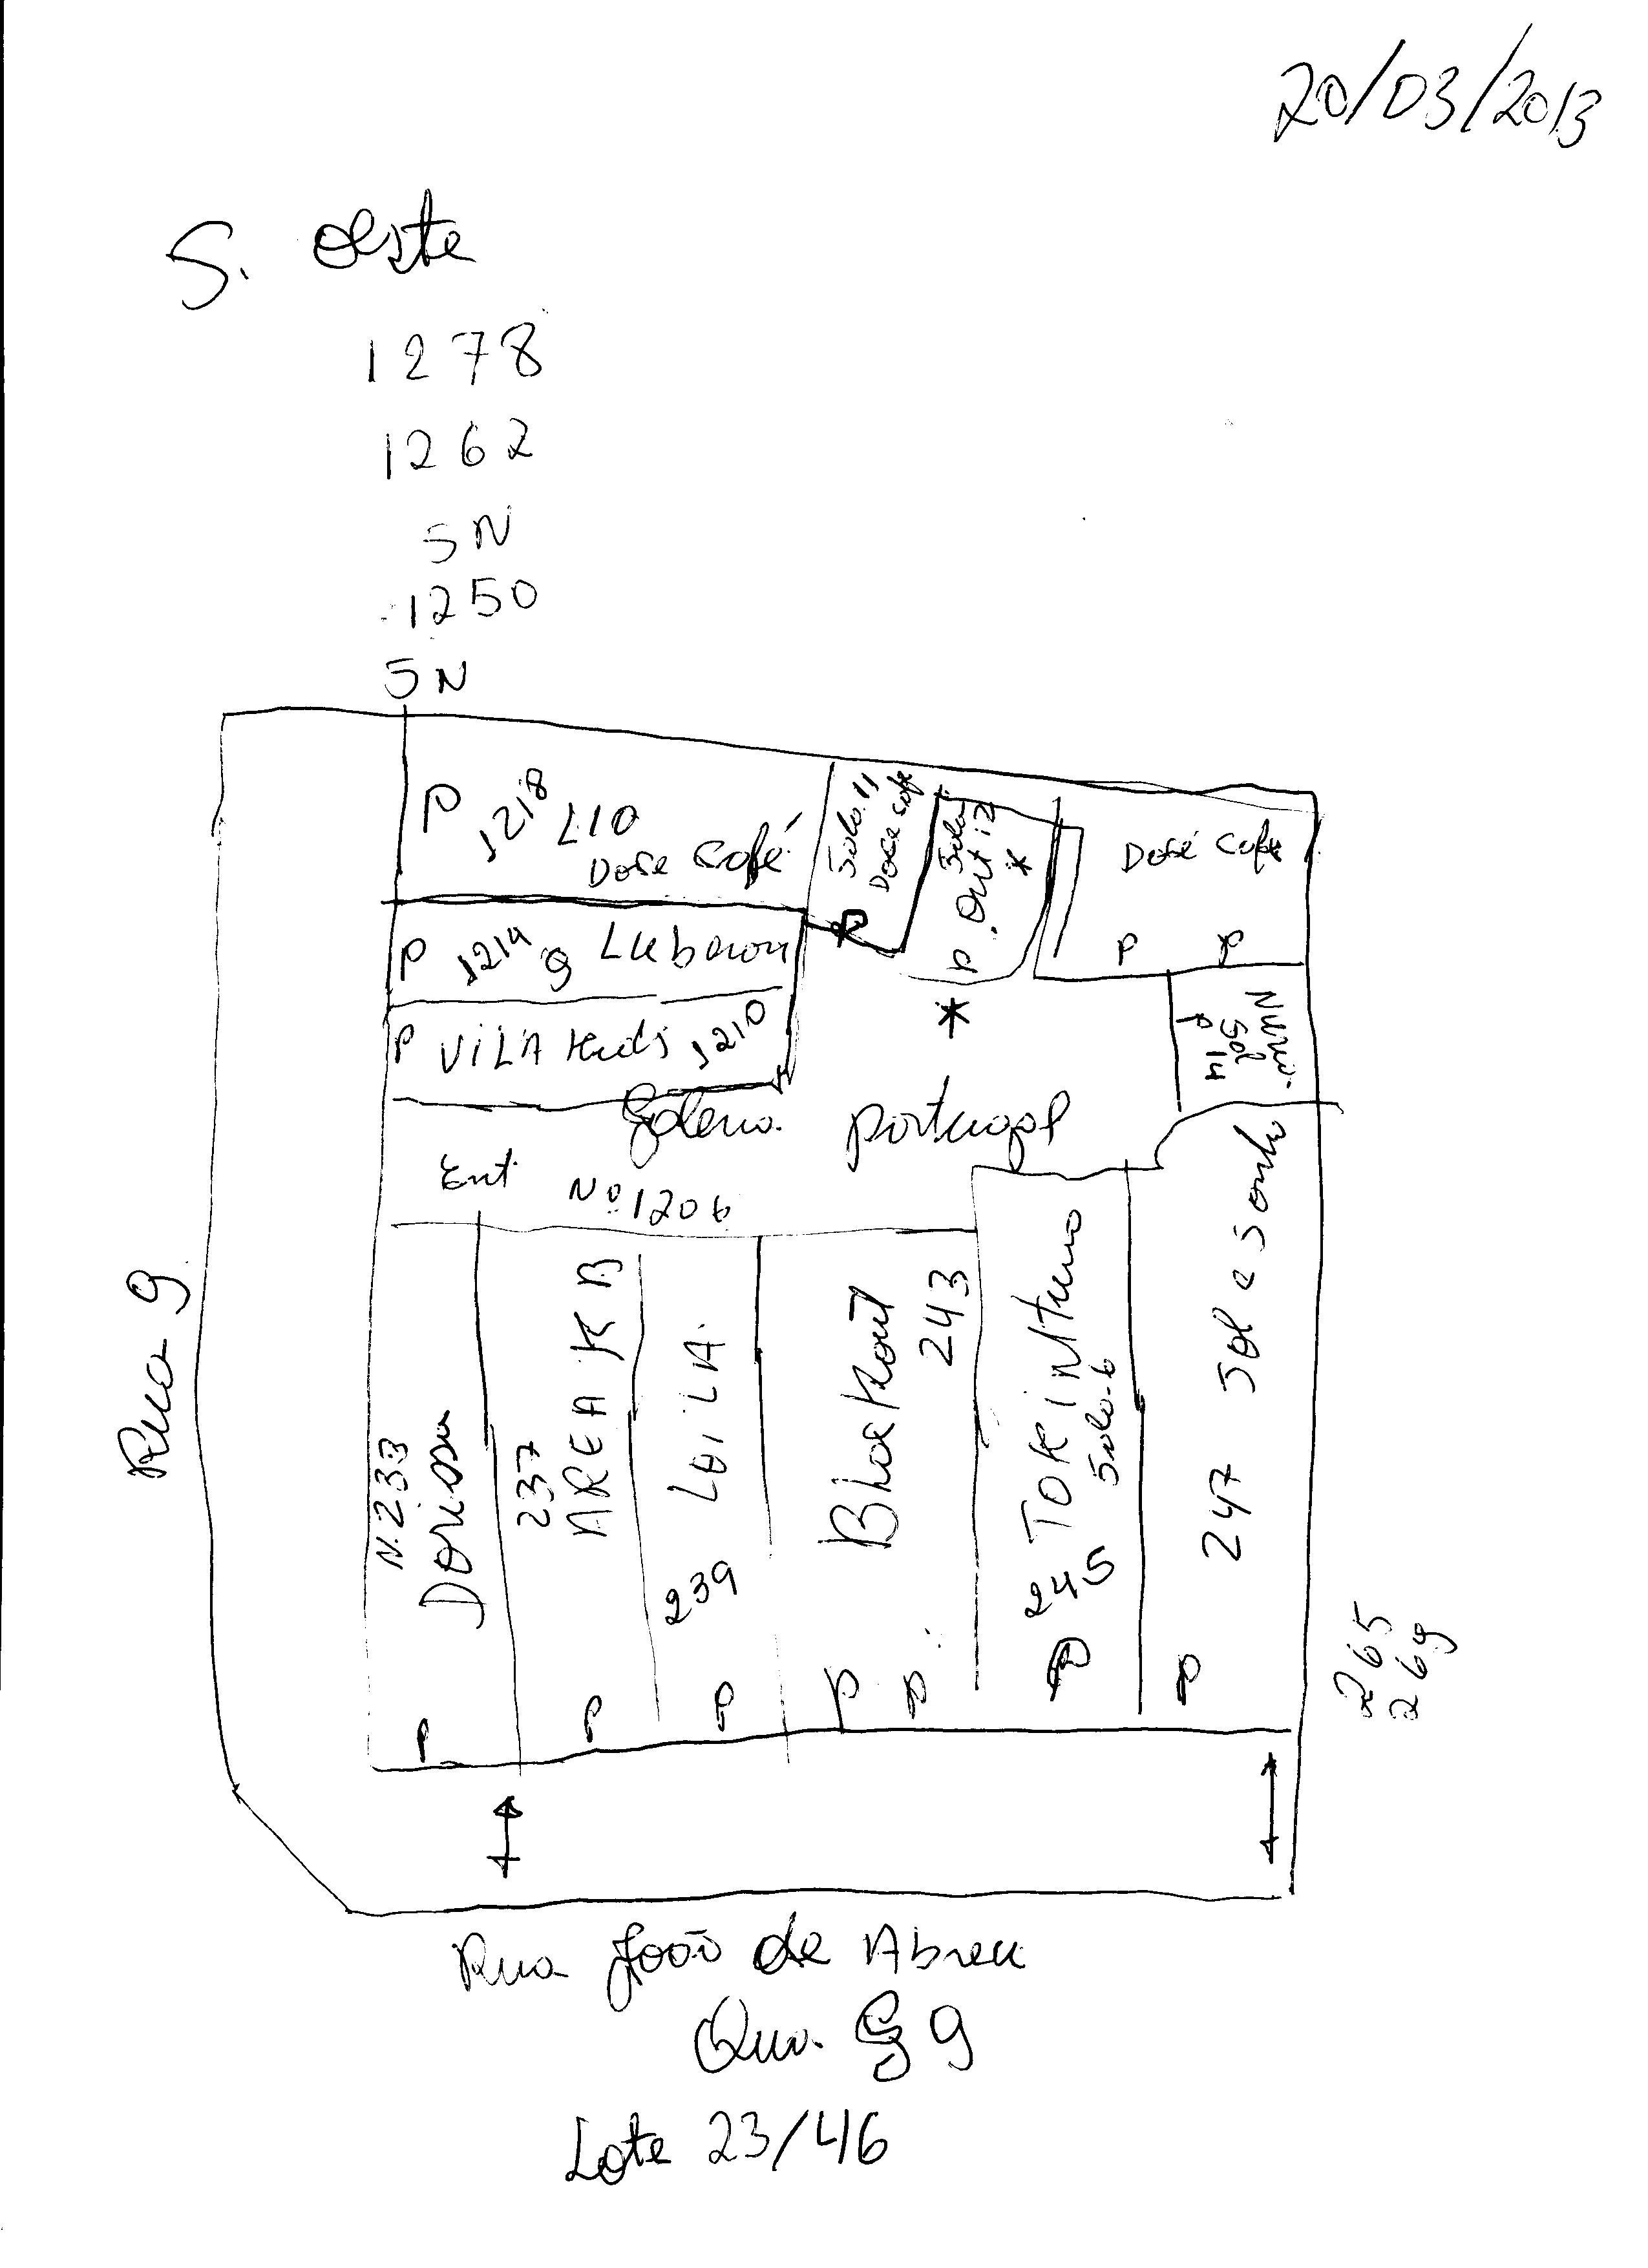 20/03/2013
S. Oeste
1278
1262
SN
1250
SN
P 1218 L10
Dose Café
Sala 11
Dose Cafe
P
Sala 12
P. Out
*
Dose Cafe
P P
P 1214 9
P VILA Kids 1210
*
Sol
14
P
Galeria Portugal
Ent. Nº 1206
Rua 9
N. 233
P
237
AREA KB
P
239
P
243
P P
Sala 6
245
P
247 Sol e Sonho
P
265
269
Rua João de Abreu
Qua. G 9
Lote 23/46